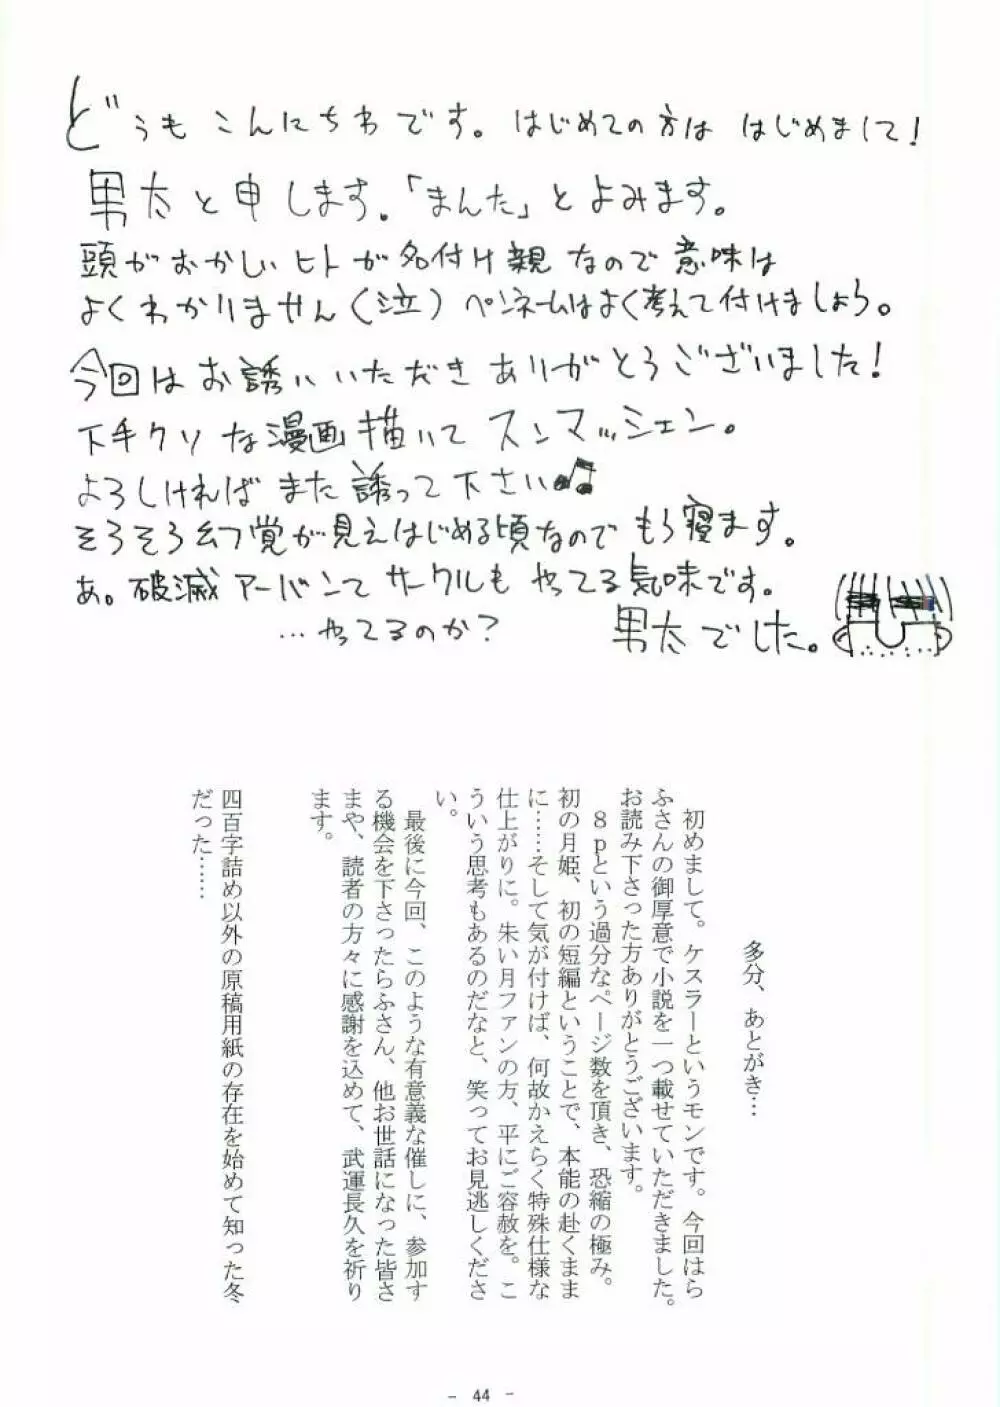 どうも こんにちわです。はじめての方は はじめまして!
男太と申します。「まんた」とよみます。
頭がおかしいヒトが名付け親なので意味は
よくわかりません(泣)ペンネームはよく考えて付けましょう。
今回はお誘いいただきありがとうございました!
下手クソな漫画描いてスンマッシェン。
よろしければまた誘って下さい♫
そろそろ幻覚が見えはじめる頃なのでもう寝ます。
あ。破滅アーバンてサークルもやってる気味です。
…やってるのか?
男太でした。
多分、あとがき…
初めまして。ケスラーというモンです。今回はら
ふさんの御厚意で小説を一つ載せていただきました。
お読み下さった方ありがとうございます。
8pという過分なページ数を頂き、恐縮の極み。
初の月姫、初の短編ということで、本能の赴くまま
に……そして気が付けば、何故かえらく特殊仕様な
仕上がりに。朱い月ファンの方、平にご容赦を。こ
ういう思考もあるのだなと、笑ってお見逃しくださ
い。
最後に今回、このような有意義な催しに、参加す
る機会を下さったらふさん、他お世話になった皆さ
まや、読者の方々に感謝を込めて、武運長久を祈り
ます。
四百字詰め以外の原稿用紙の存在を始めて知った冬
だった……
- 44 -